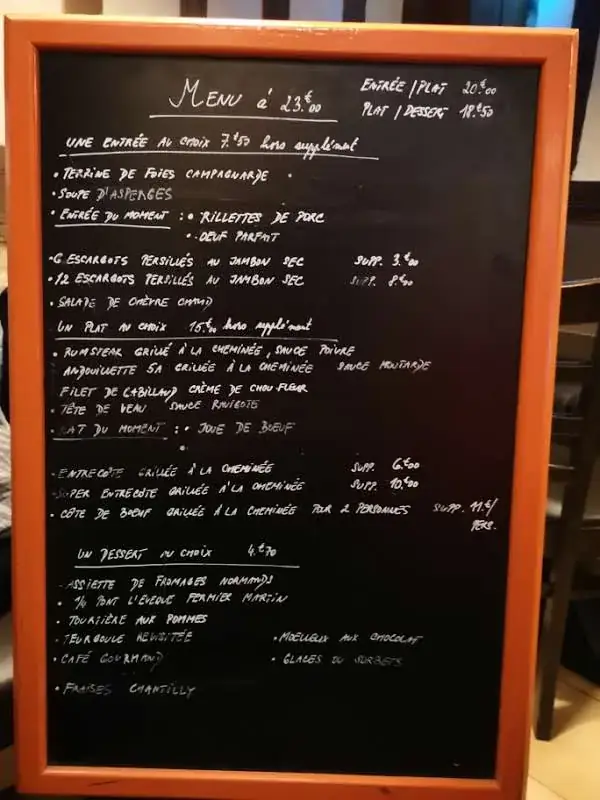 MENU à 23.€00
ENTRÉE / PLAT 20.€00
PLAT / DESSERT 18.€50
UNE ENTRÉE AU CHOIX 7.€50 hors supplément
• TERRINE DE FOIES CAMPAGNARDE •
• SOUPE D'ASPERGES
• ENTRÉE DU MOMENT : • RILLETTES DE PORC
• OEUF PARFAIT
• 6 ESCARGOTS PERSILLÉS AU JAMBON SEC SUPP. 3.€00
• 12 ESCARGOTS PERSILLÉS AU JAMBON SEC SUPP. 8.€00
• SALADE DE CHÈVRE CHAUD
UN PLAT AU CHOIX 15.€00 hors supplément
• RUMSTEAK GRILLÉ À LA CHEMINÉE, SAUCE POIVRE
ANDOUILLETTE 5A GRILLÉE À LA CHEMINÉE SAUCE MOUTARDE
FILET DE CABILLAUD CRÈME DE CHOU FLEUR
• TÊTE DE VEAU SAUCE RAVIGOTE
PLAT DU MOMENT : • JOUE DE BOEUF
• ENTRECÔTE GRILLÉE À LA CHEMINÉE SUPP. 6.€00
• SUPER ENTRECÔTE GRILLÉE À LA CHEMINÉE SUPP. 10.€00
• CÔTE DE BOEUF GRILLÉE À LA CHEMINÉE POUR 2 PERSONNES SUPP. 11.€/
PERS.
UN DESSERT AU CHOIX 4.€70
ASSIETTE DE FROMAGES NORMANDS
• 1/4 PONT L'EVEQUE FERMIER MARTIN
• TOURTIÈRE AUX POMMES
• TEURGOULE REVISITÉE • MOELLEUX AUX CHOCOLAT
• CAFÉ GOURMAND • GLACES OU SORBETS
• FRAISES CHANTILLY